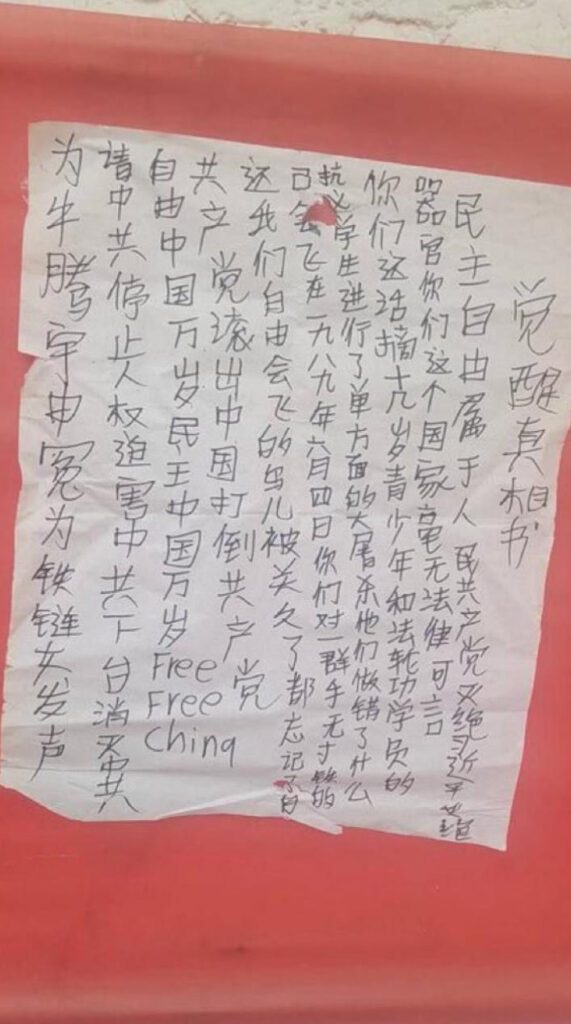 觉醒真相书
民主自由属于人民共产党灭绝习近平灭绝
器官你们这个国家毫无法律可言
你们这活摘十几岁青少年和法轮功学员的
抗议学生进行了单方面的大屠杀他们做错了什么
己会飞在一九八九年六月四日你们对一群手无寸铁的
还我们自由会飞的鸟儿被关久了都忘记了自
共产党滚出中国打倒共产党
自由中国万岁民主中国万岁Free Free China
请中共停止人权迫害中共下台消灭中共
为牛腾宇申冤为铁链女发声